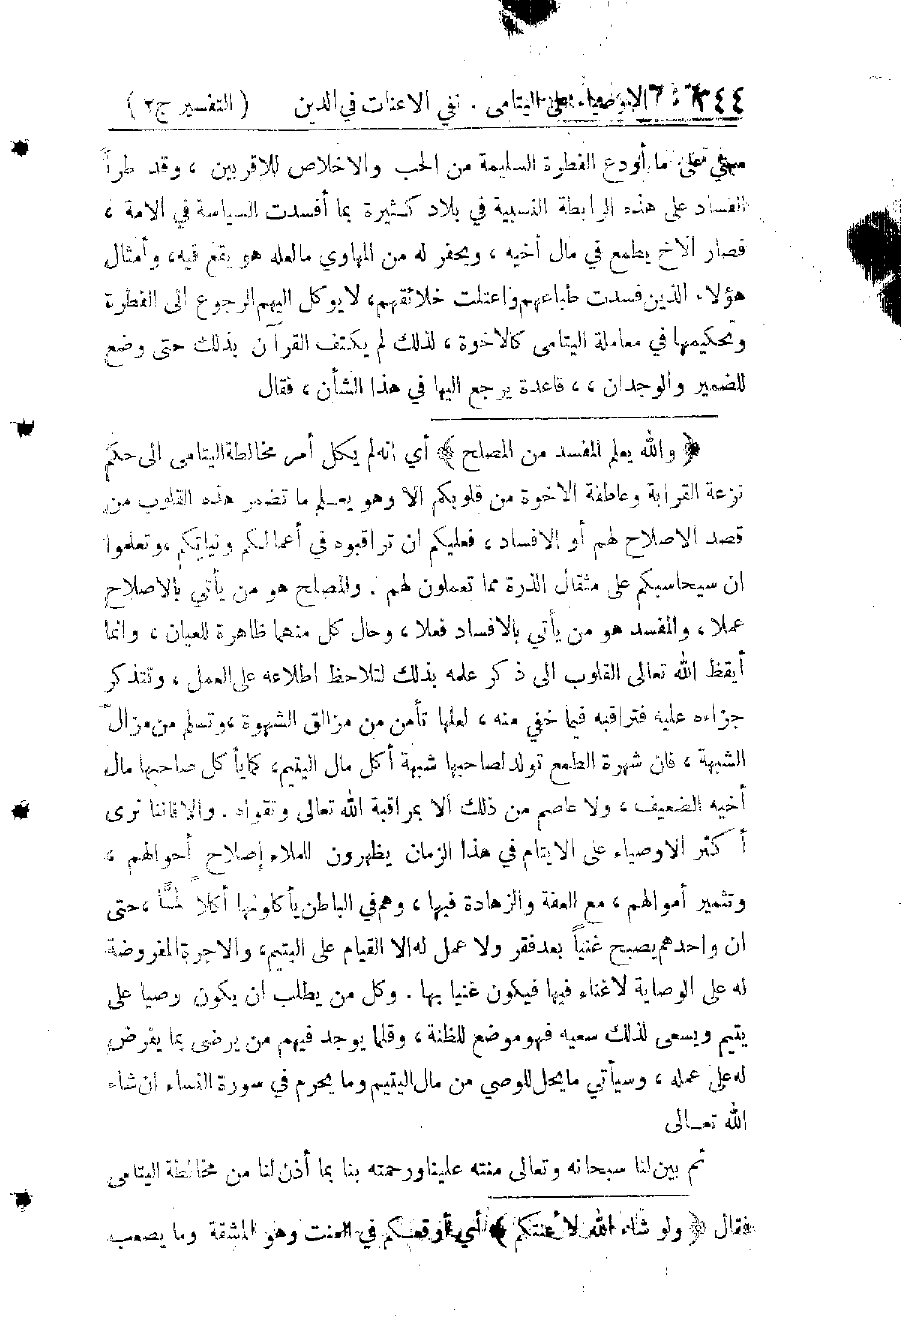 ٣٤٤ الاوصياء على اليتامى . نفي الاعنات في الدين ( التفسير ج٢ )
مبني على ما أودع الفطرة السليمة من الحب والاخلاص للاقربين ، وقد طرأ
الفساد على هذه الرابطة النسبية في بلاد كثيرة بما أفسدت السياسة في الامة ،
فصار الاخ يطمع في مال أخيه ، ويحفر له من المهاوي مالعله هو يقع فيه، وأمثال
هؤلاء الذين فسدت طباعهم واعتلت خلائقهم، لا يوكل اليهم الرجوع الى الفطرة
وتحكيمها في معاملة اليتامى كالاخوة ، لذلك لم يكتف القرآن بذلك حتى وضع
للضمير والوجدان ، ، قاعدة يرجع اليها في هذا الشأن ، فقال
﴿ والله يعلم المفسد من المصلح ﴾ أي انه لم يكل أمر مخالطة اليتامى الى حكم
نزعة القرابة وعاطفة الاخوة من قلوبكم الا وهو يعـلم ما تضمر هذه القلوب من
قصد الاصلاح لهم أو الافساد ، فعليكم ان تراقبوه في أعمالكم ونياتكم ،وتعلموا
ان سيحاسبكم على مثقال الذرة مما تعملون لهم . والمصلح هو من يأتي بالاصلاح
عملا ، والمفسد هو من يأتي بالافساد فعلا ، وحال كل منهما ظاهرة للعيان ، وانما
أيقظ الله تعالى القلوب الى ذكر علمه بذلك لتلاحظ اطلاعه على العمل ، وتتذكر
جزاءه عليه فتراقبه فيما خفي منه ، لعلها تأمن من مزالق الشهوة ،وتسلم من مزالّ
الشبهة ، فان شهوة الطمع تولد لصاحبها شبهة أكل مال اليتيم، كما يأكل صاحبها مال
أخيه الضعيف ، ولا عاصم من ذلك الا بمراقبة الله تعالى وتقواه . والا فاننا نرى
أكثر الاوصياء على الايتام في هذا الزمان يظهرون للملاء إصلاح أحوالهم ،
وتثمير أموالهم ، مع العفة والزهادة فيها ، وهم في الباطن يأكلونها أكلاً لمّاً ،حتى
ان واحدهم يصبح غنياً بعد فقر ولا عمل له الا القيام على اليتيم، والاجرة المفروضة
له على الوصاية لا غناء فيها فيكون غنيا بها . وكل من يطلب ان يكون وصيا على
يتيم ويسعى لذلك سعيه فهو موضع للظنة ، وقلما يوجد فيهم من يرضى بما يفرض
له على عمله ، وسيأتي ما يحل للوصي من مال اليتيم وما يحرم في سورة النساء ان شاء
الله تعـالى
ثم بين لنا سبحانه وتعالى منته علينا ورحمته بنا بما أذن لنا من مخالطة اليتامى
فقال ﴿ ولو شاء الله لأعنتكم ﴾ أي أوقعكم في العنت وهو المشقة وما يصعب